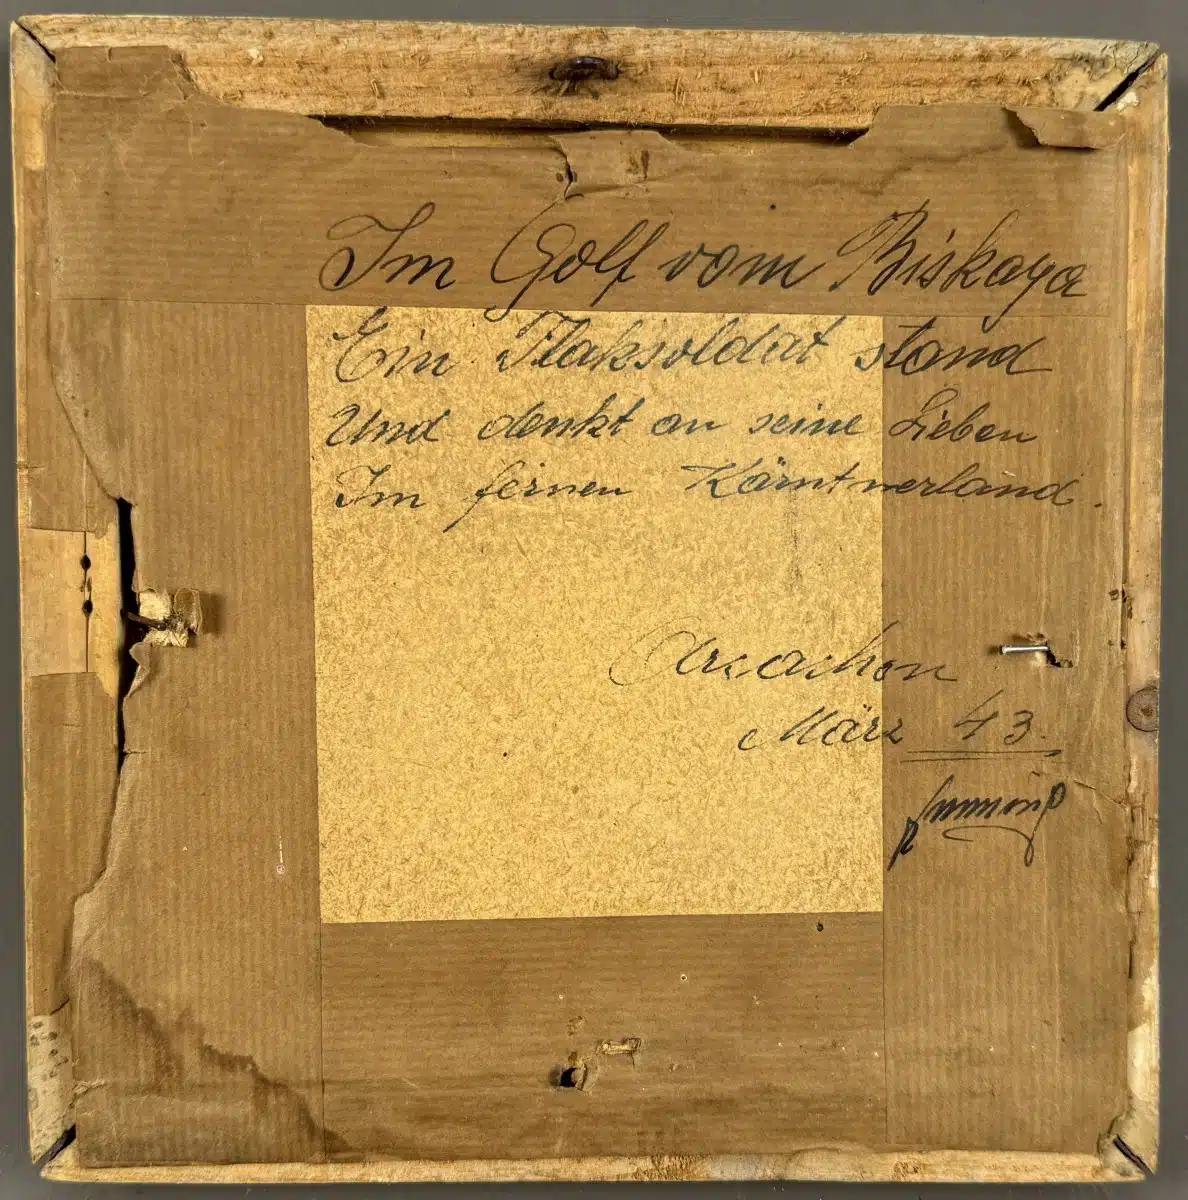 Im Golf vom Biskaya
Ein Flaksoldat stand
Und denkt an seine Lieben
Im fernen Kärntnerland.
Arcachon
März 43.